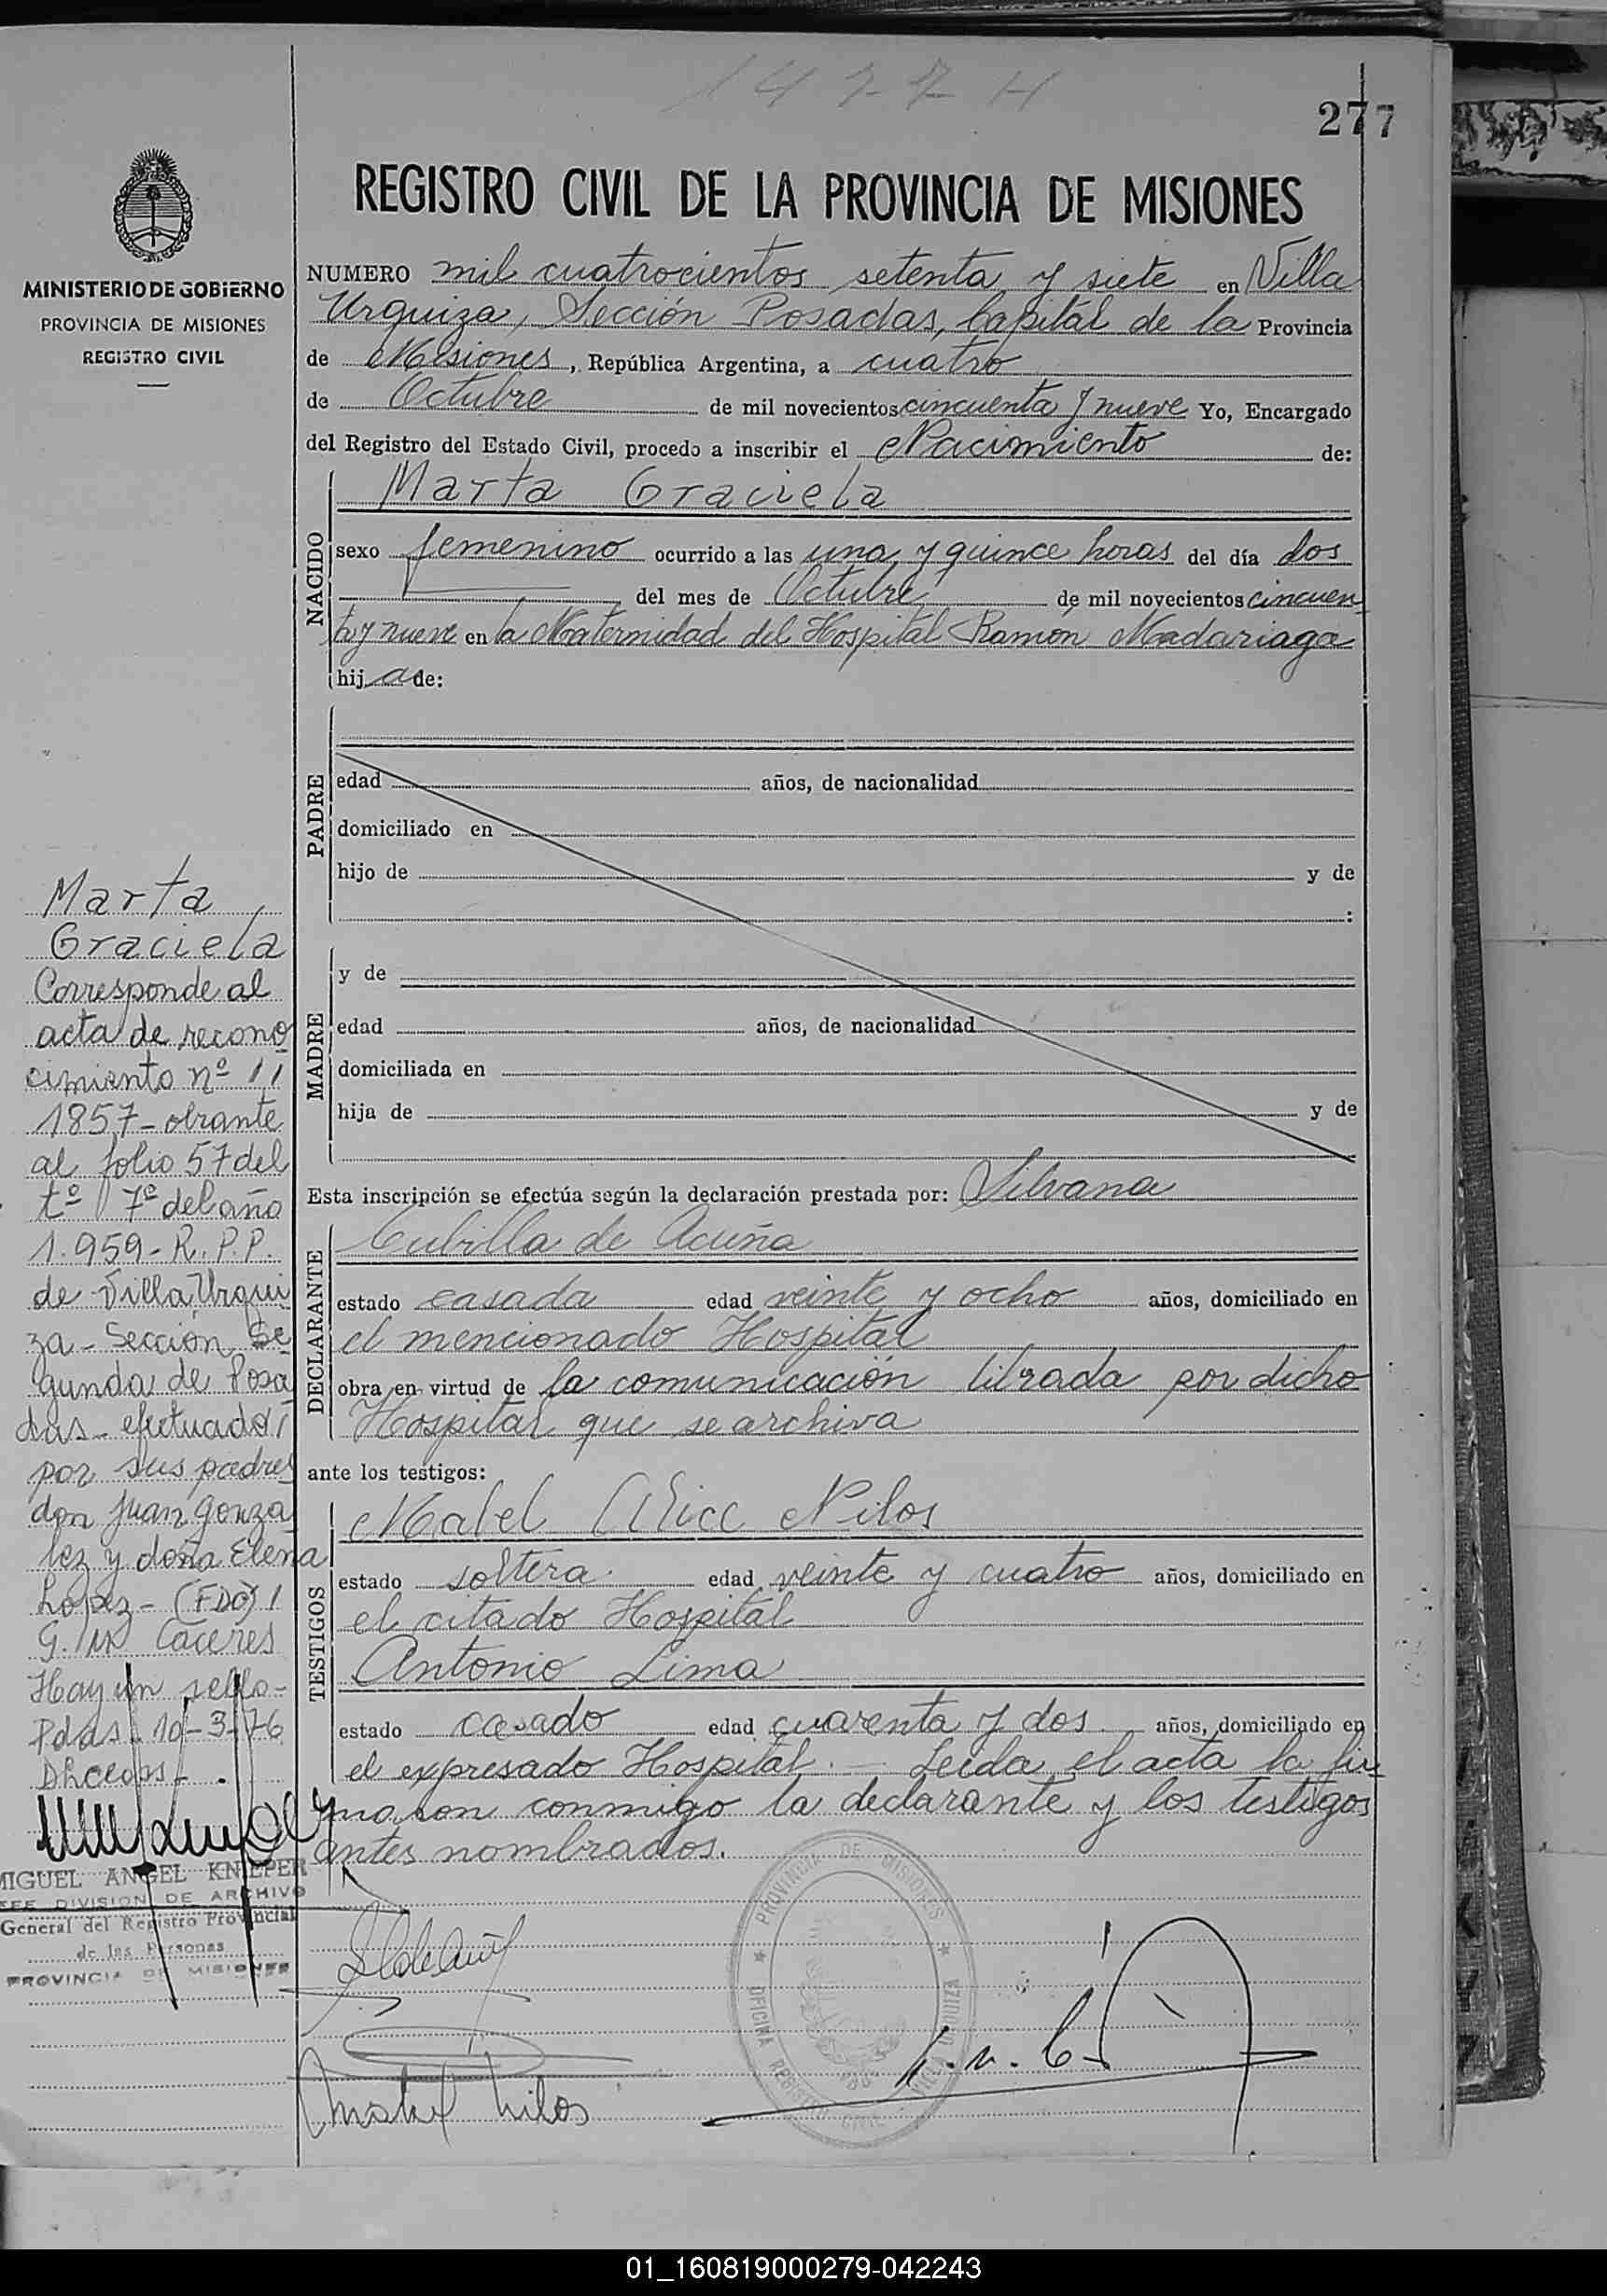 1477 H
277
REGISTRO CIVIL DE LA PROVINCIA DE MISIONES
MINISTERIO DE GOBIERNO
PROVINCIA DE MISIONES
REGISTRO CIVIL
NUMERO mil cuatrocientos setenta y siete en Villa
Urquiza, Sección Posadas, Capital de la Provincia
de Misiones, República Argentina, a cuatro
de Octubre de mil novecientos cincuenta y nueve Yo, Encargado
del Registro del Estado Civil, procedo a inscribir el Nacimiento de:
NACIDO
Marta Graciela
sexo femenino ocurrido a las una y quince horas del día dos
del mes de Octubre de mil novecientos cincuen
ta y nueve en la Maternidad del Hospital Ramón Madariaga
hija de:
PADRE
edad años, de nacionalidad
domiciliado en
hijo de y de
:
MADRE
y de
edad años, de nacionalidad
domiciliada en
hija de y de
Esta inscripción se efectúa según la declaración prestada por: Silvana
DECLARANTE
Cubilla de Acuña
estado casada edad veinte y ocho años, domiciliado en
el mencionado Hospital
obra en virtud de la comunicación librada por dicho
Hospital que se archiva
ante los testigos:
TESTIGOS
Mabel Alice Nilos
estado soltera edad veinte y cuatro años, domiciliado en
el citado Hospital
Antonio Lima
estado casado edad cuarenta y dos años, domiciliado en
el expresado Hospital. — Leída el acta la fir
maron conmigo la declarante y los testigos
antes nombrados.
Marta
Graciela
Corresponde al
acta de recono
cimiento nº
1857 - obrante
al folio 57 del
tº 7º del año
1.959 - R. P. P.
de Villa Urqui
za - Sección Se
gunda de Posa
das - efectuado
por sus padres
don Juan Gonza
lez y doña Elena
Lopez - (FDO)
G. M. Caceres
Hay un sello -
Pdas. 10-3-76
MIGUEL ANGEL KNIEPER
JEFE DIVISION DE ARCHIVO
General del Registro Provincial
de las Personas
PROVINCIA DE MISIONES
Mabel Nilos
PROVINCIA DE MISIONES
OFICINA REGISTRO CIVIL
VILLA URQUIZA
01_160819000279-042243